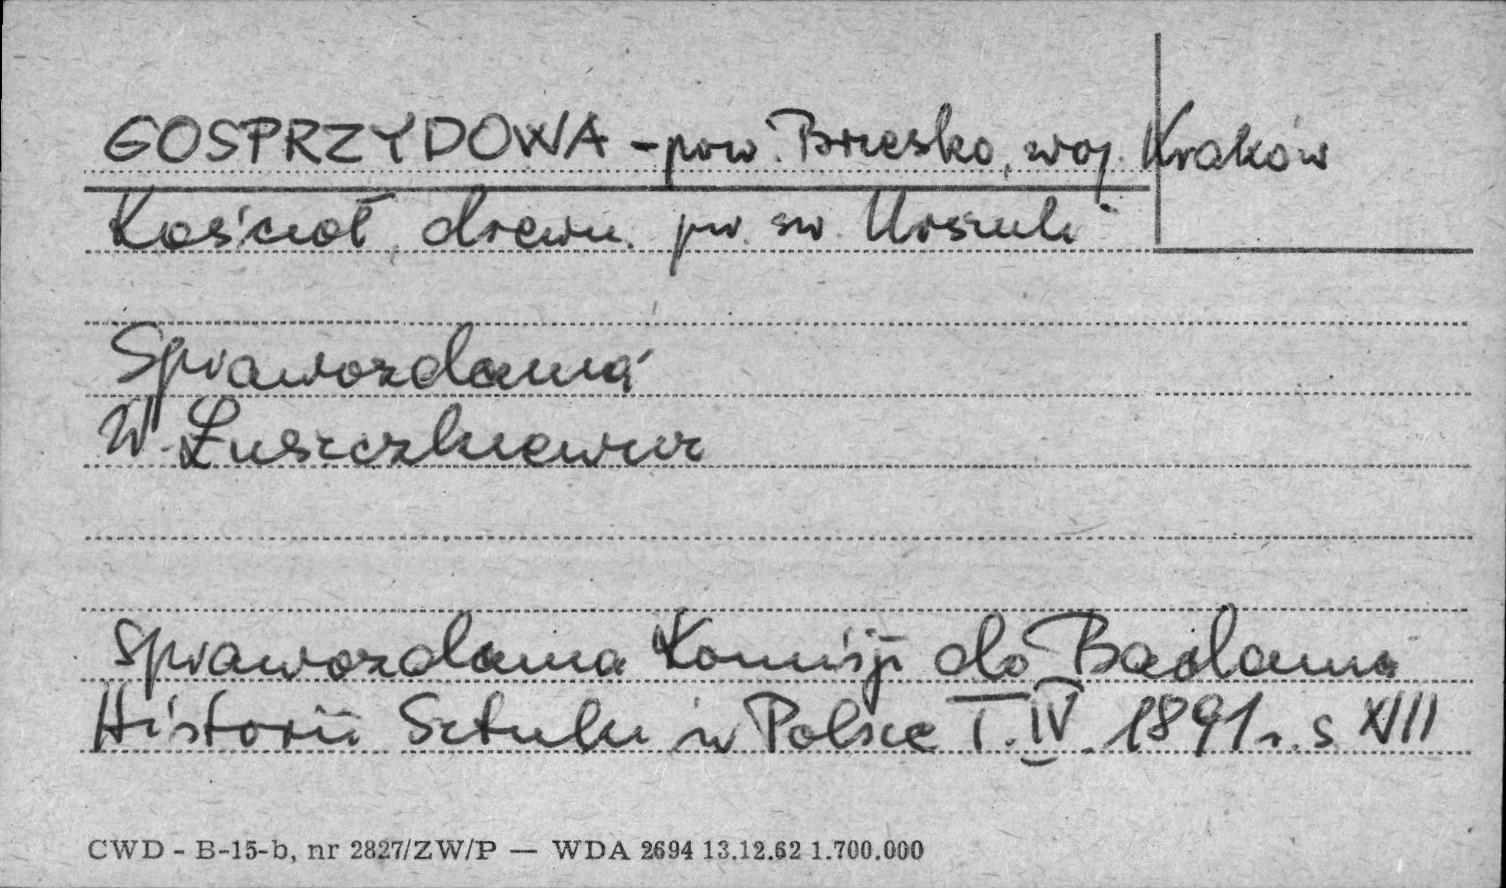 GOSPRZYDOWA - pow. Brzesko, woj. Kraków
Kościół drewn. pw. św. Urszuli
Sprawozdania
W. Łuszczkiewicz
Sprawozdania Komisji do Badania
Historii Sztuki w Polsce T. IV. 1891 r. s XIII
CWD - B-15-b, nr 2827/ZW/P — WDA 2694 13.12.62 1.700.000